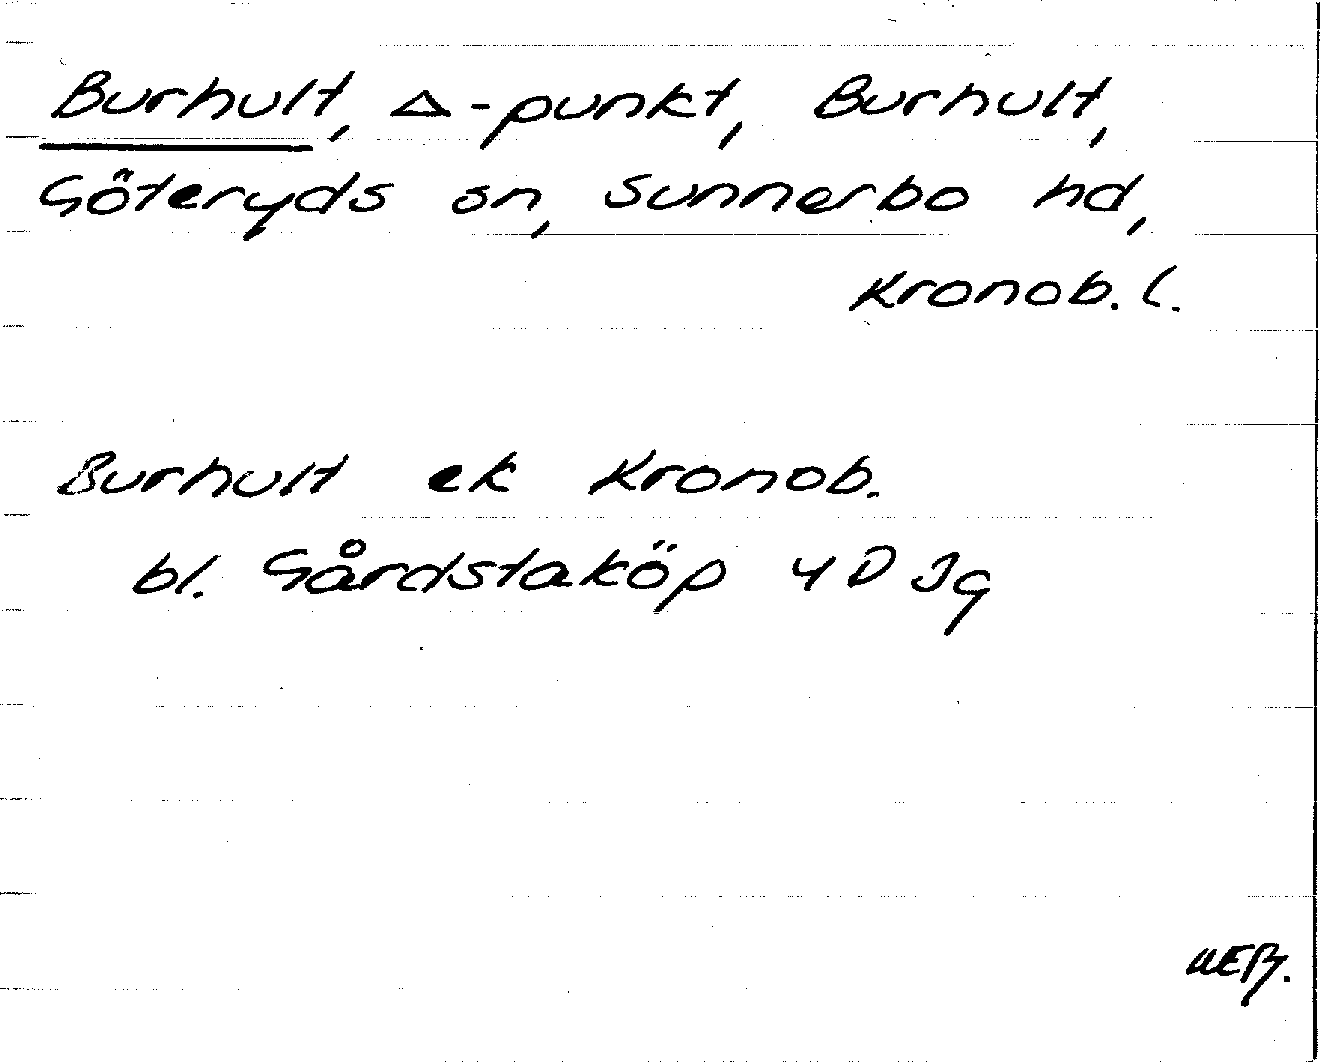 Burhult, △-punkt, Burhult,
Göteryds sn, Sunnerbo hd,
Kronob. l.
Burhult ek Kronob.
bl. Gårdstaköp 4D Jg